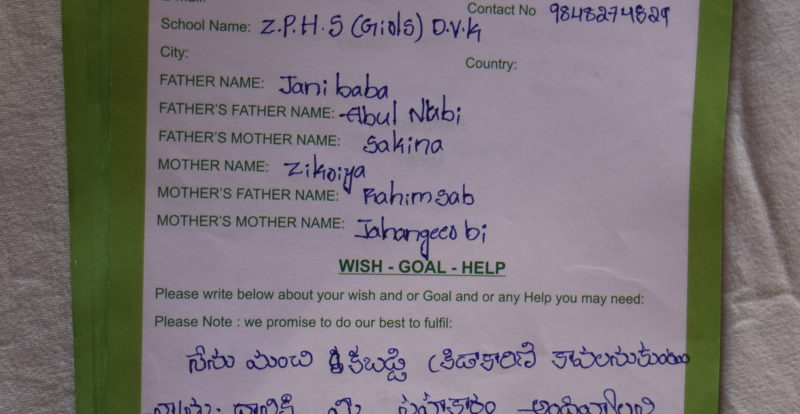 Contact No 9848274829
School Name: Z.P.H.S (Girls) D.V.K
City:
Country:
FATHER NAME: Jani baba
FATHER'S FATHER NAME: Abul Nabi
FATHER'S MOTHER NAME: Sakina
MOTHER NAME: Zikriya
MOTHER'S FATHER NAME: Rahimsab
MOTHER'S MOTHER NAME: Jahangeer bi
WISH - GOAL - HELP
Please write below about your wish and or Goal and or any Help you may need:
Please Note : we promise to do our best to fulfil:
నేను మంచి కబడ్డి క్రీడాకారిణి కావలనుకుంటు